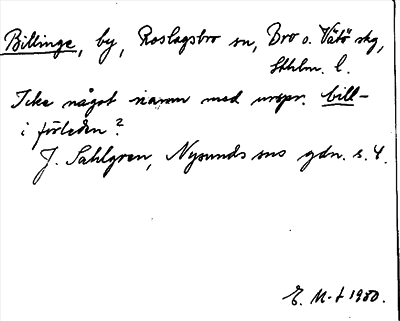 Billinge, by, Roslagsbro sn, Bro o. Vätö skg,
Sthlm. l.
Icke något namn med urspr. bill-
i förleden?
J. Sahlgren, Nysunds sns gdn. s. 4.
E. M-t 1930.